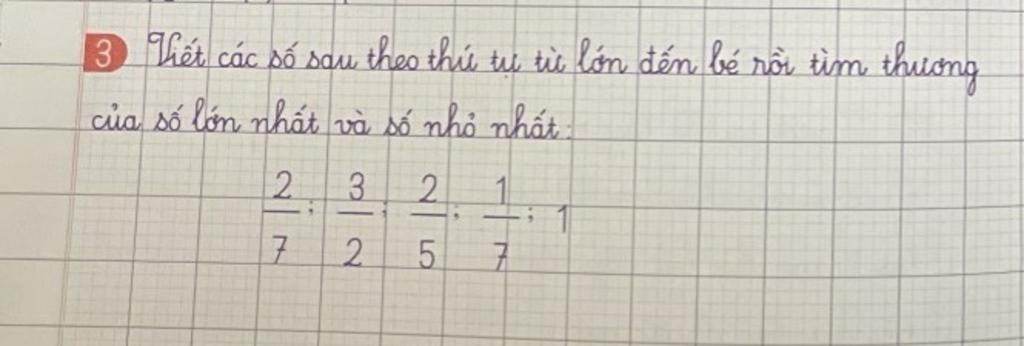 3 Viết các số sau theo thứ tự từ lớn đến bé rồi tìm thương
của số lớn nhất và số nhỏ nhất:
2/7 ; 3/2 ; 2/5 ; 1/7 ; 1